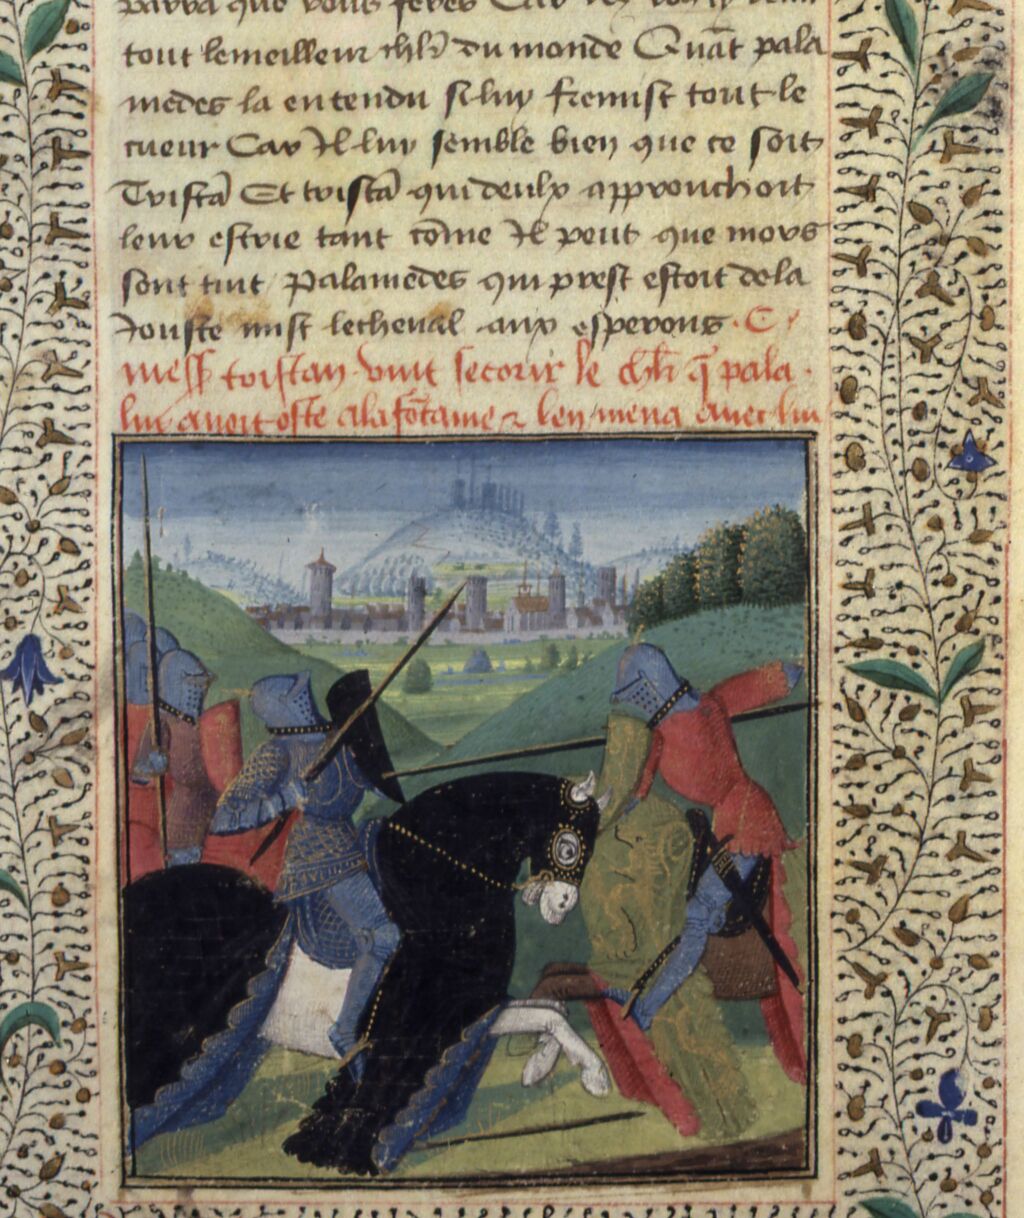 que vous
tout lemeilleur chlr du monde Quāt pala
medes la entendu si luy fremist tout le
cueur Car Il luy semble bien que ce soit
Tristā Et tristā qui deulx approuchoit
leur escrie tant cōme Il peut que mors
sont tuit Palamedes qui prest estoit de la
Jouste mist le cheval aux esperons. C
mess tristan vint secorir le chlr q̄ pala
lui avoit oste a la fōtaine & len mena avec lui